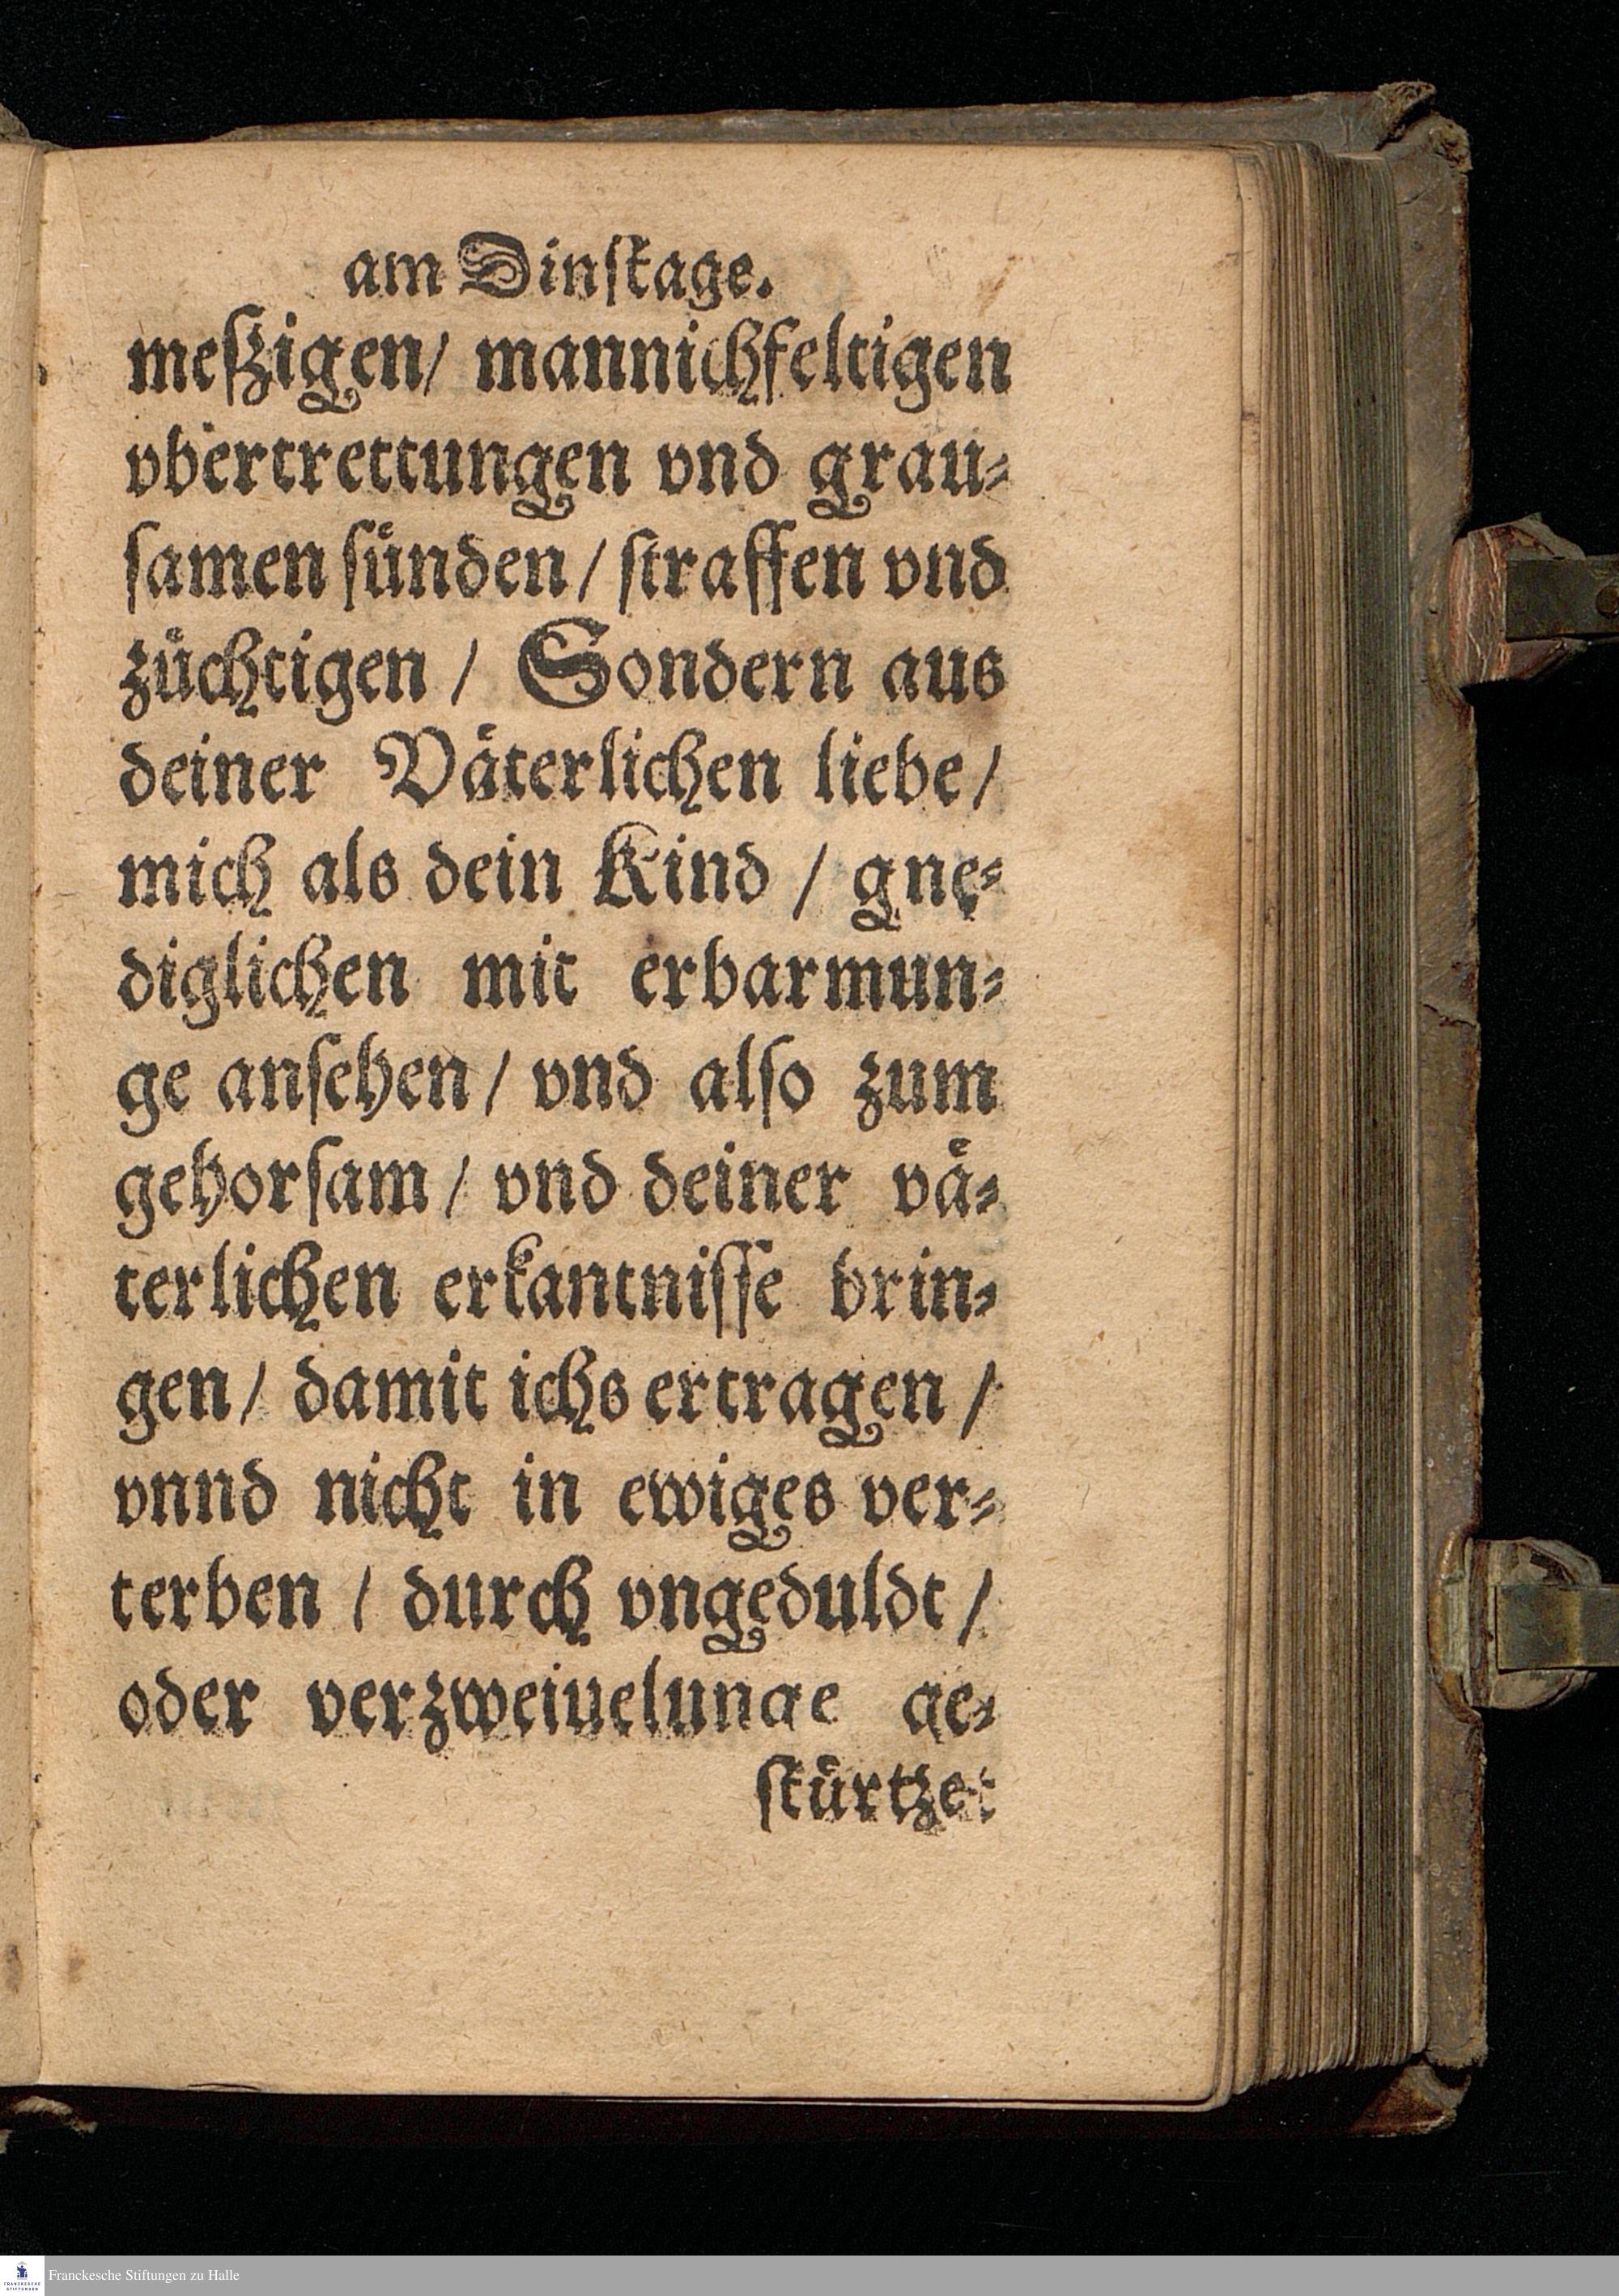 am Dinſtage.
meſzigen/ mannichfeltigen
vbertrettungen vnd grau⸗
ſamen ſuͤnden/ ſtraffen vnd
zuͤchtigen / Sondern aus
deiner Vaͤterlichen liebe/
mich als dein Kind / gne⸗
diglichen mit erbarmun⸗
ge anſehen/ vnd alſo zum
gehorſam/ vnd deiner vaͤ⸗
terlichen erkantniſſe brin⸗
gen/ damit ichs ertragen /
vnnd nicht in ewiges ver⸗
terben / durch vngeduldt /
oder verzweiuelunge ge⸗
ſtuͤrtzet
FRANCKESCHE
STIFTUNGEN
Franckesche Stiftungen zu Halle